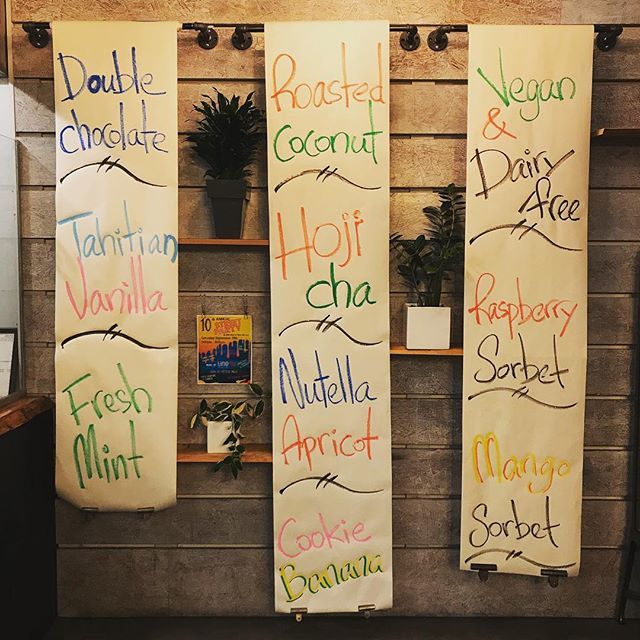 Double
chocolate
Tahitian
Vanilla
Fresh
Mint
10
Roasted
Coconut
Hoji
cha
Nutella
Apricot
Cookie
Banana
Vegan
&
Dairy
free
Raspberry
Sorbet
Mango
Sorbet